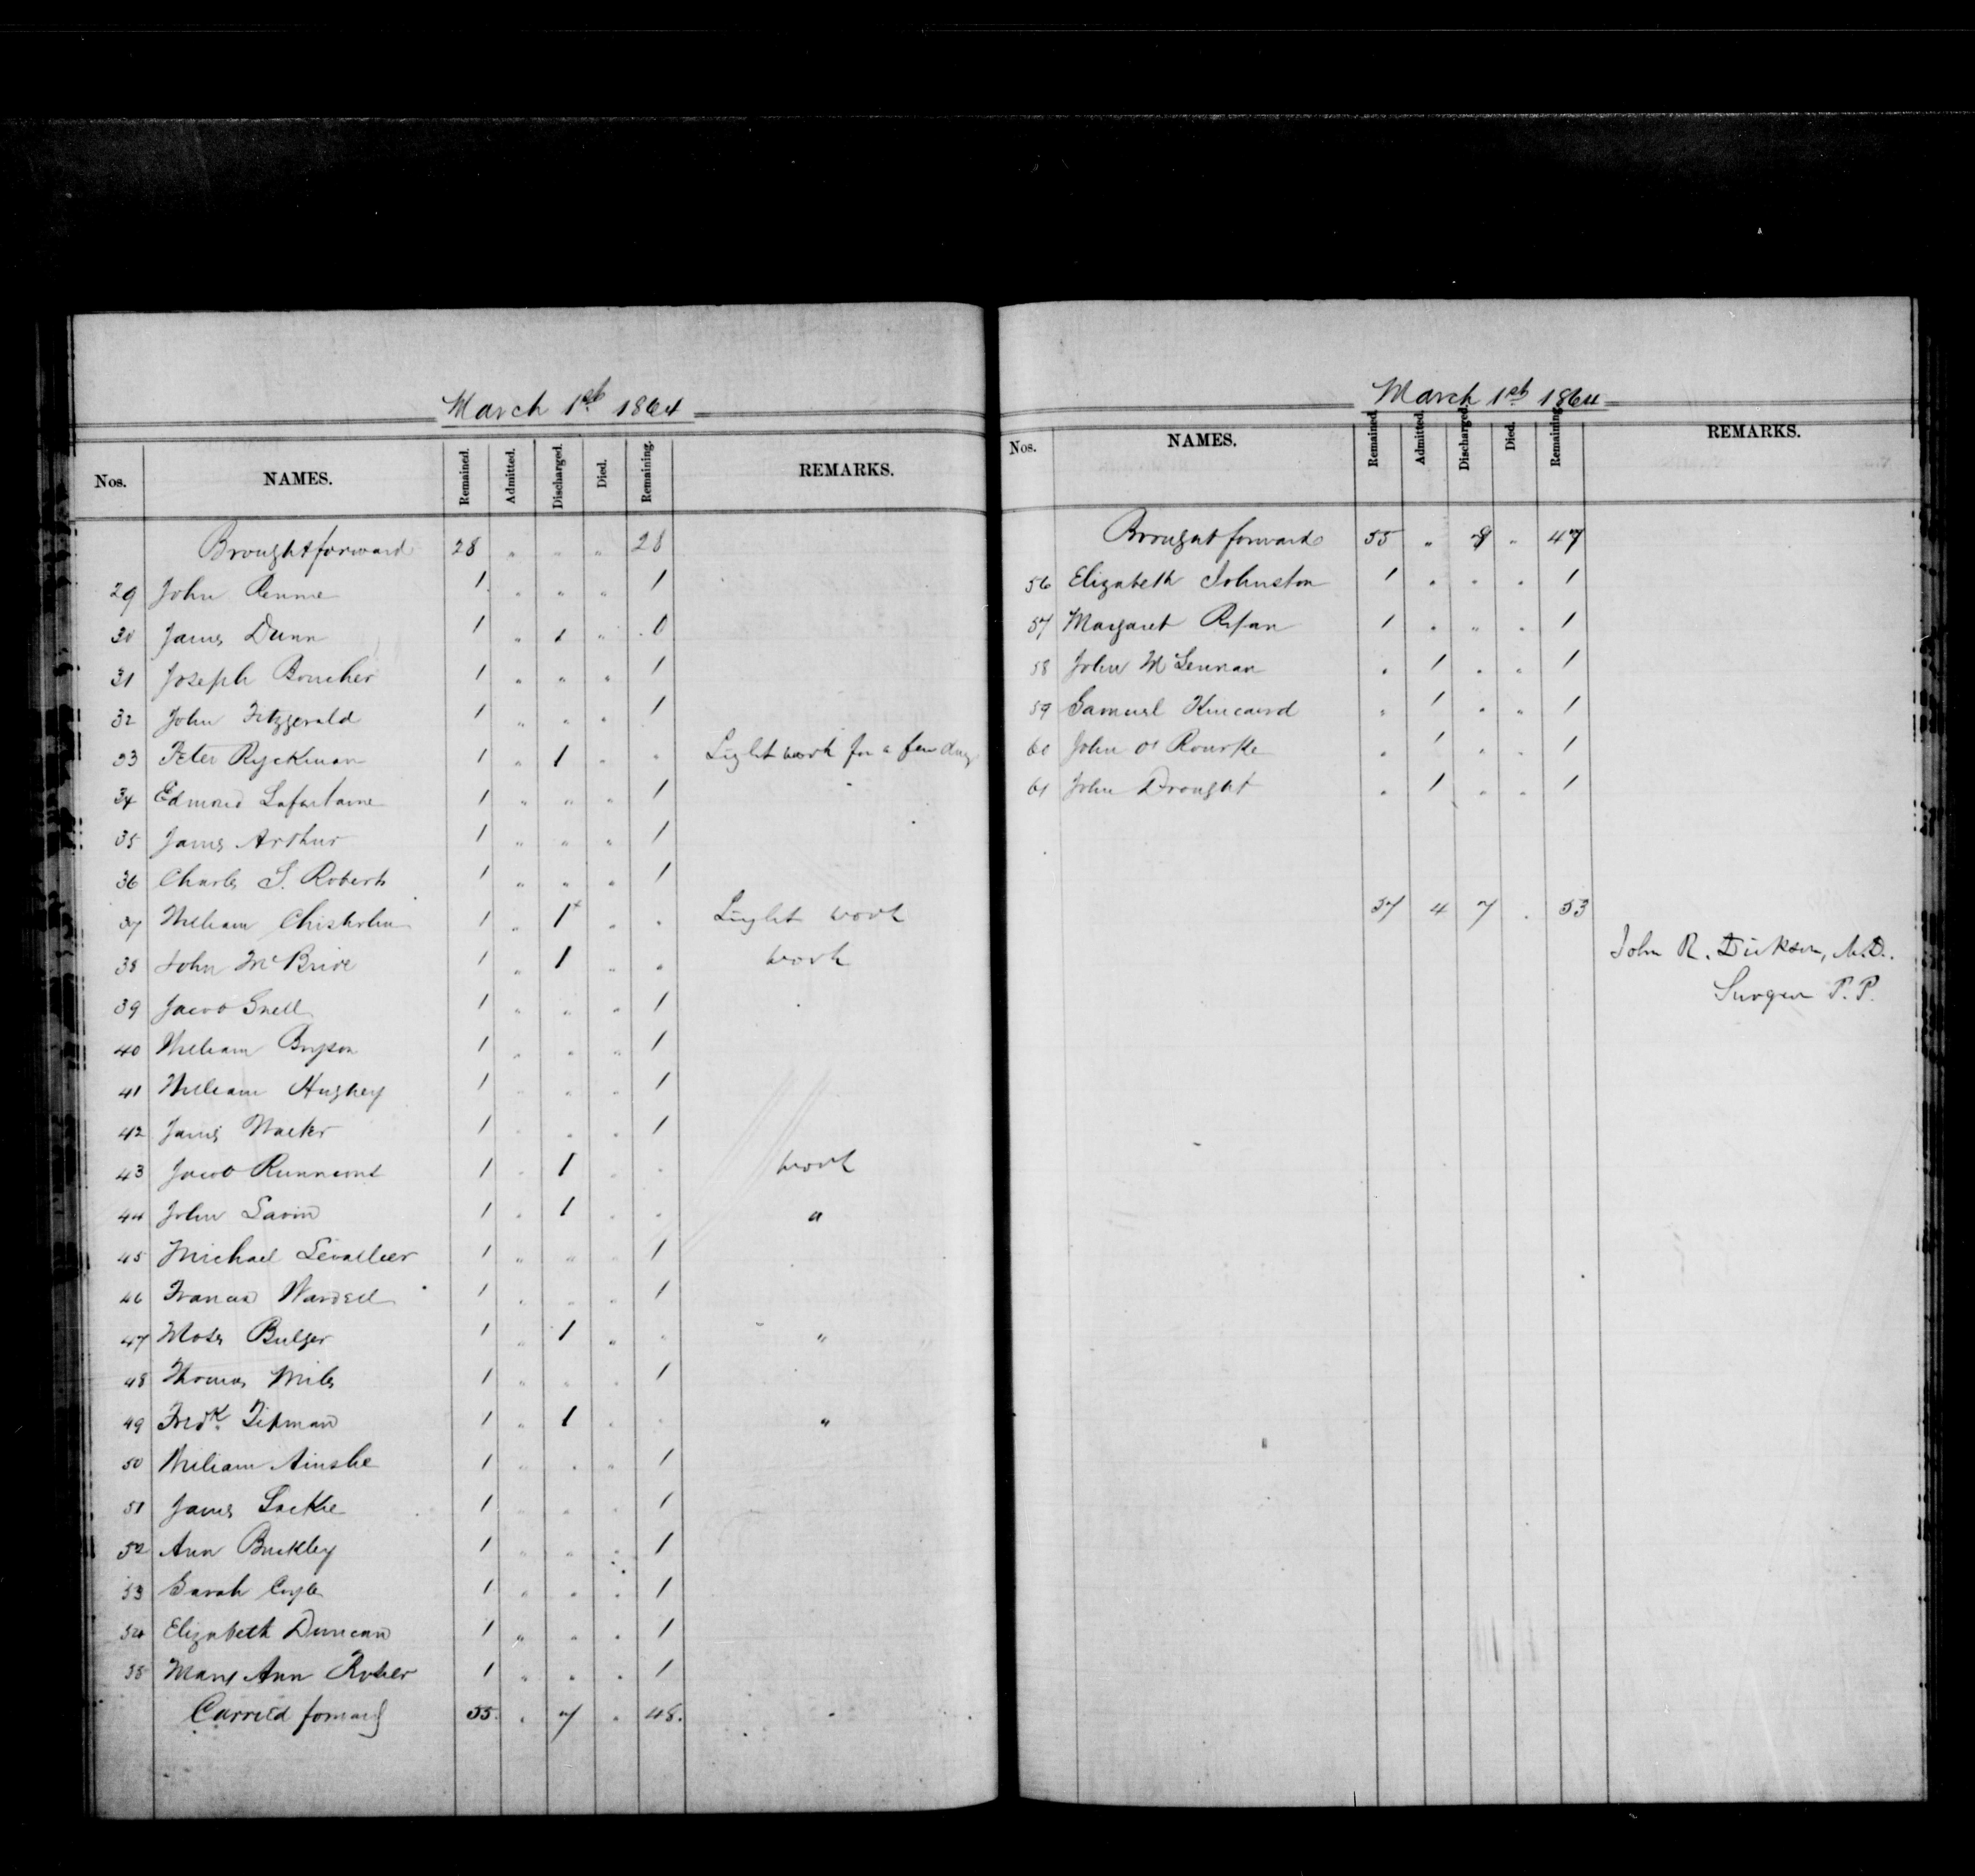 March 1st 1864
Nos. NAMES. Remained. Admitted. Discharged. Died. Remaining. REMARKS.
Brought forward 28 " " " 28
29 John Rennie 1 " " " 1
30 James Dunn 1 " 1 " 0
31 Joseph Boucher 1 " " " 1
32 John Fitzgerald 1 " " " 1
33 Peter Ryckman 1 " 1 " " Light work for a few days
34 Edmond Lafontaine 1 " " " 1
35 James Arthur 1 " " " 1
36 Charles S. Roberts 1 " " " 1
37 William Chisholm 1 " 1+ " " Light work
38 John McBride 1 " 1 " " work
39 Jacob Snell 1 " " " 1
40 William Bryson 1 " " " 1
41 William Hughey 1 " " " 1
42 James Walker 1 " " " 1
43 Jacob 1 " 1 " " work
44 John Lavin 1 " 1 " " "
45 Michael Levallier 1 " " " 1
46 Francis Wardell 1 " " " 1
47 Moses Bulger 1 " 1 " " "
48 Thomas Miles 1 " " " 1
49 Fredk. Tipman 1 " 1 " " "
50 William Ainslie 1 " " " 1
51 James Lackie 1 " " " 1
52 Ann Buckley 1 " " " 1
53 Sarah Coyle 1 " " " 1
54 Elizabeth Duncan 1 " " " 1
55 Mary Ann 1 " " " 1
Carried forward 55. " 7 " 48.
March 1st 1864
Nos. NAMES. Remained. Admitted. Discharged. Died. Remaining. REMARKS.
Brought forward 55 " " 47
56 Elizabeth Johnston 1 " " " 1
57 Margaret Ryan 1 " " " 1
58 John McLennan " 1 " " 1
59 Samuel Kincaird " 1 " " 1
60 John O'Rourke " 1 " " 1
61 John Drought " 1 " " 1
57 4 7 " 53
John R. Dickson, M.D.
Surgeon P.P.